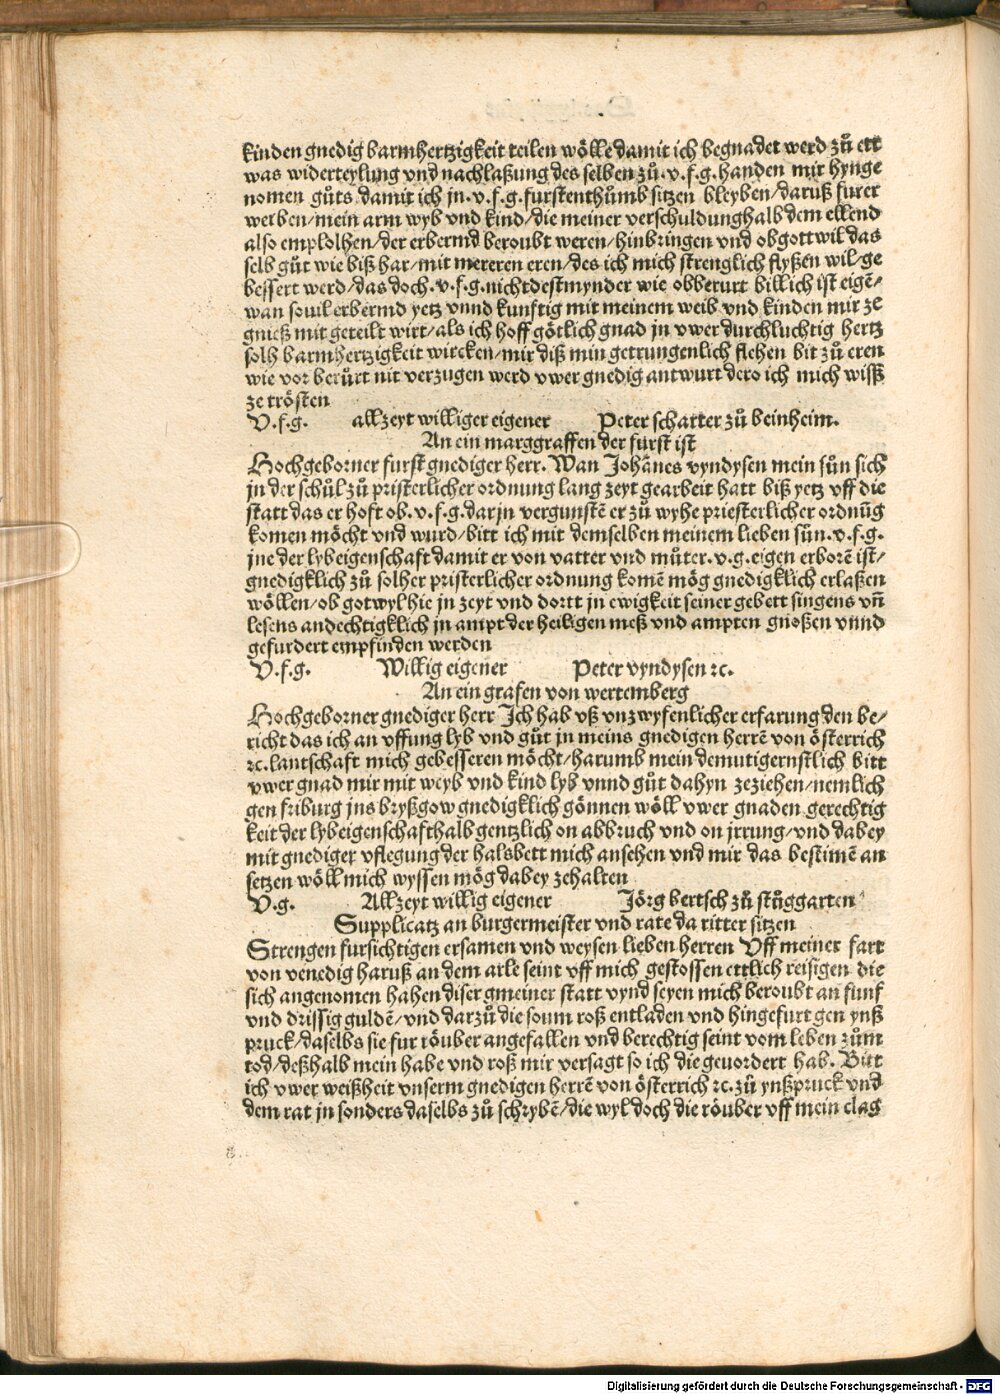 kinden gnedig barmhertzigkeit teilen wölle damit ich begnadet werd zů ett
was widerteylung vnd nachlaßung des selben zů. v. f. g. handen mir hynge
nomen gůts damit ich jn. v. f. g. furstenthůmb sitzen bleyben/daruß furer
werben/mein arm wyb vnd kind/die meiner verschuldunghalb dem ellend
also emplolhen/der erbermd beroubt weren/hinbringen vnd ob gott wil das
selb gůt wie biß har/mit mereren eren/des ich mich strenglich flyßen wil/ge
bessert werd/das doch. v. f. g. nichtdestmynder wie obberurt billich ist eigē/
wan souil erbermd yetz vnnd kunftig mit meinem weib vnd kinden mir ze
gnieß mit geteilt wirt/als ich hoff götlich gnad jn vwer durchluchtig hertz
solh barmhertzigkeit wircken/mir diß min getrungenlich flehen bit zů eren
wie vor berůrt nit verzugen werd vwer gnedig antwurt dero ich mich wisß
ze trösten
V. f. g. allzeyt williger eigener Peter scharter zů beinheim.
An ein marggraffen der furst ist
Hochgeborner furst gnediger herr. Wan Johānes vyndysen mein sůn sich
jn der schůl zů pristerlicher ordnung lang zeyt gearbeit hatt biß yetz vff die
statt das er hoft ob. v. f. g. darjn vergunstē er zů wyhe priesterlicher ordnūg
komen möcht vnd wurd/bitt ich mit demselben meinem lieben sůn. v. f. g.
jne der lybeigenschaft damit er von vatter vnd můter. v. g. eigen erborē ist/
gnedigklich zů solher pristerlicher ordnung komē mög gnedigklich erlaßen
wöllen/ob got wyl hie jn zeyt vnd dortt jn ewigkeit seiner gebett singens vñ
lesens andechtigklich jn ampt der heiligen meß vnd ampten gnoßen vnnd
gefurdert empfinden werden
V. f. g. Willig eigener Peter vyndysen ꝛc.
An ein grafen von wertemberg
Hochgeborner gnediger herr Ich hab vß vnzwyfenlicher erfarung den be/
richt das ich an vffung lyb vnd gůt jn meins gnedigen herrē von österrich
ꝛc. lantschaft mich gebesseren möcht/harumb mein demutigernstlich bitt
vwer gnad mir mit weyb vnd kind lyb vnnd gůt dahyn zeziehen/nemlich
gen friburg jns bryßgow gnedigklich gönnen wöll vwer gnaden gerechtig
keit der lybeigenschafthalb gentzlich on abbruch vnd on jrrung/vnd dabey
mit gnediger vflegung der halsbett mich ansehen vnd mir das bestimē an
setzen wöll mich wyssen mög dabey zehalten
V. g. Allzeyt willig eigener Jörg bertsch zů stůggarten
Supplicatz an burgermeister vnd rate da ritter sitzen
Strengen fursichtigen ersamen vnd weysen lieben herren Vff meiner fart
von venedig haruß an dem arle seint vff mich gestossen ettlich reisigen die
sich angenomen haben diser gmeiner statt vynd seyen mich beroubt an funf
vnd drissig guldē/vnd darzů die soum roß entladen vnd hingefurt gen ynß
pruck/daselbs sie fur röuber angefallen vnd berechtig seint vom leben zům
tod/deßhalb mein habe vnd roß mir versagt so ich die geuordert hab. Bitt
ich vwer weißheit vnserm gnedigen herrē von österrich ꝛc. zů ynßpruck vnd
dem rat jn sonders daselbs zů schrybē/die wyl doch die röuber vff mein clag
Digitalisierung gefördert durch die Deutsche Forschungsgemeinschaft - DFG